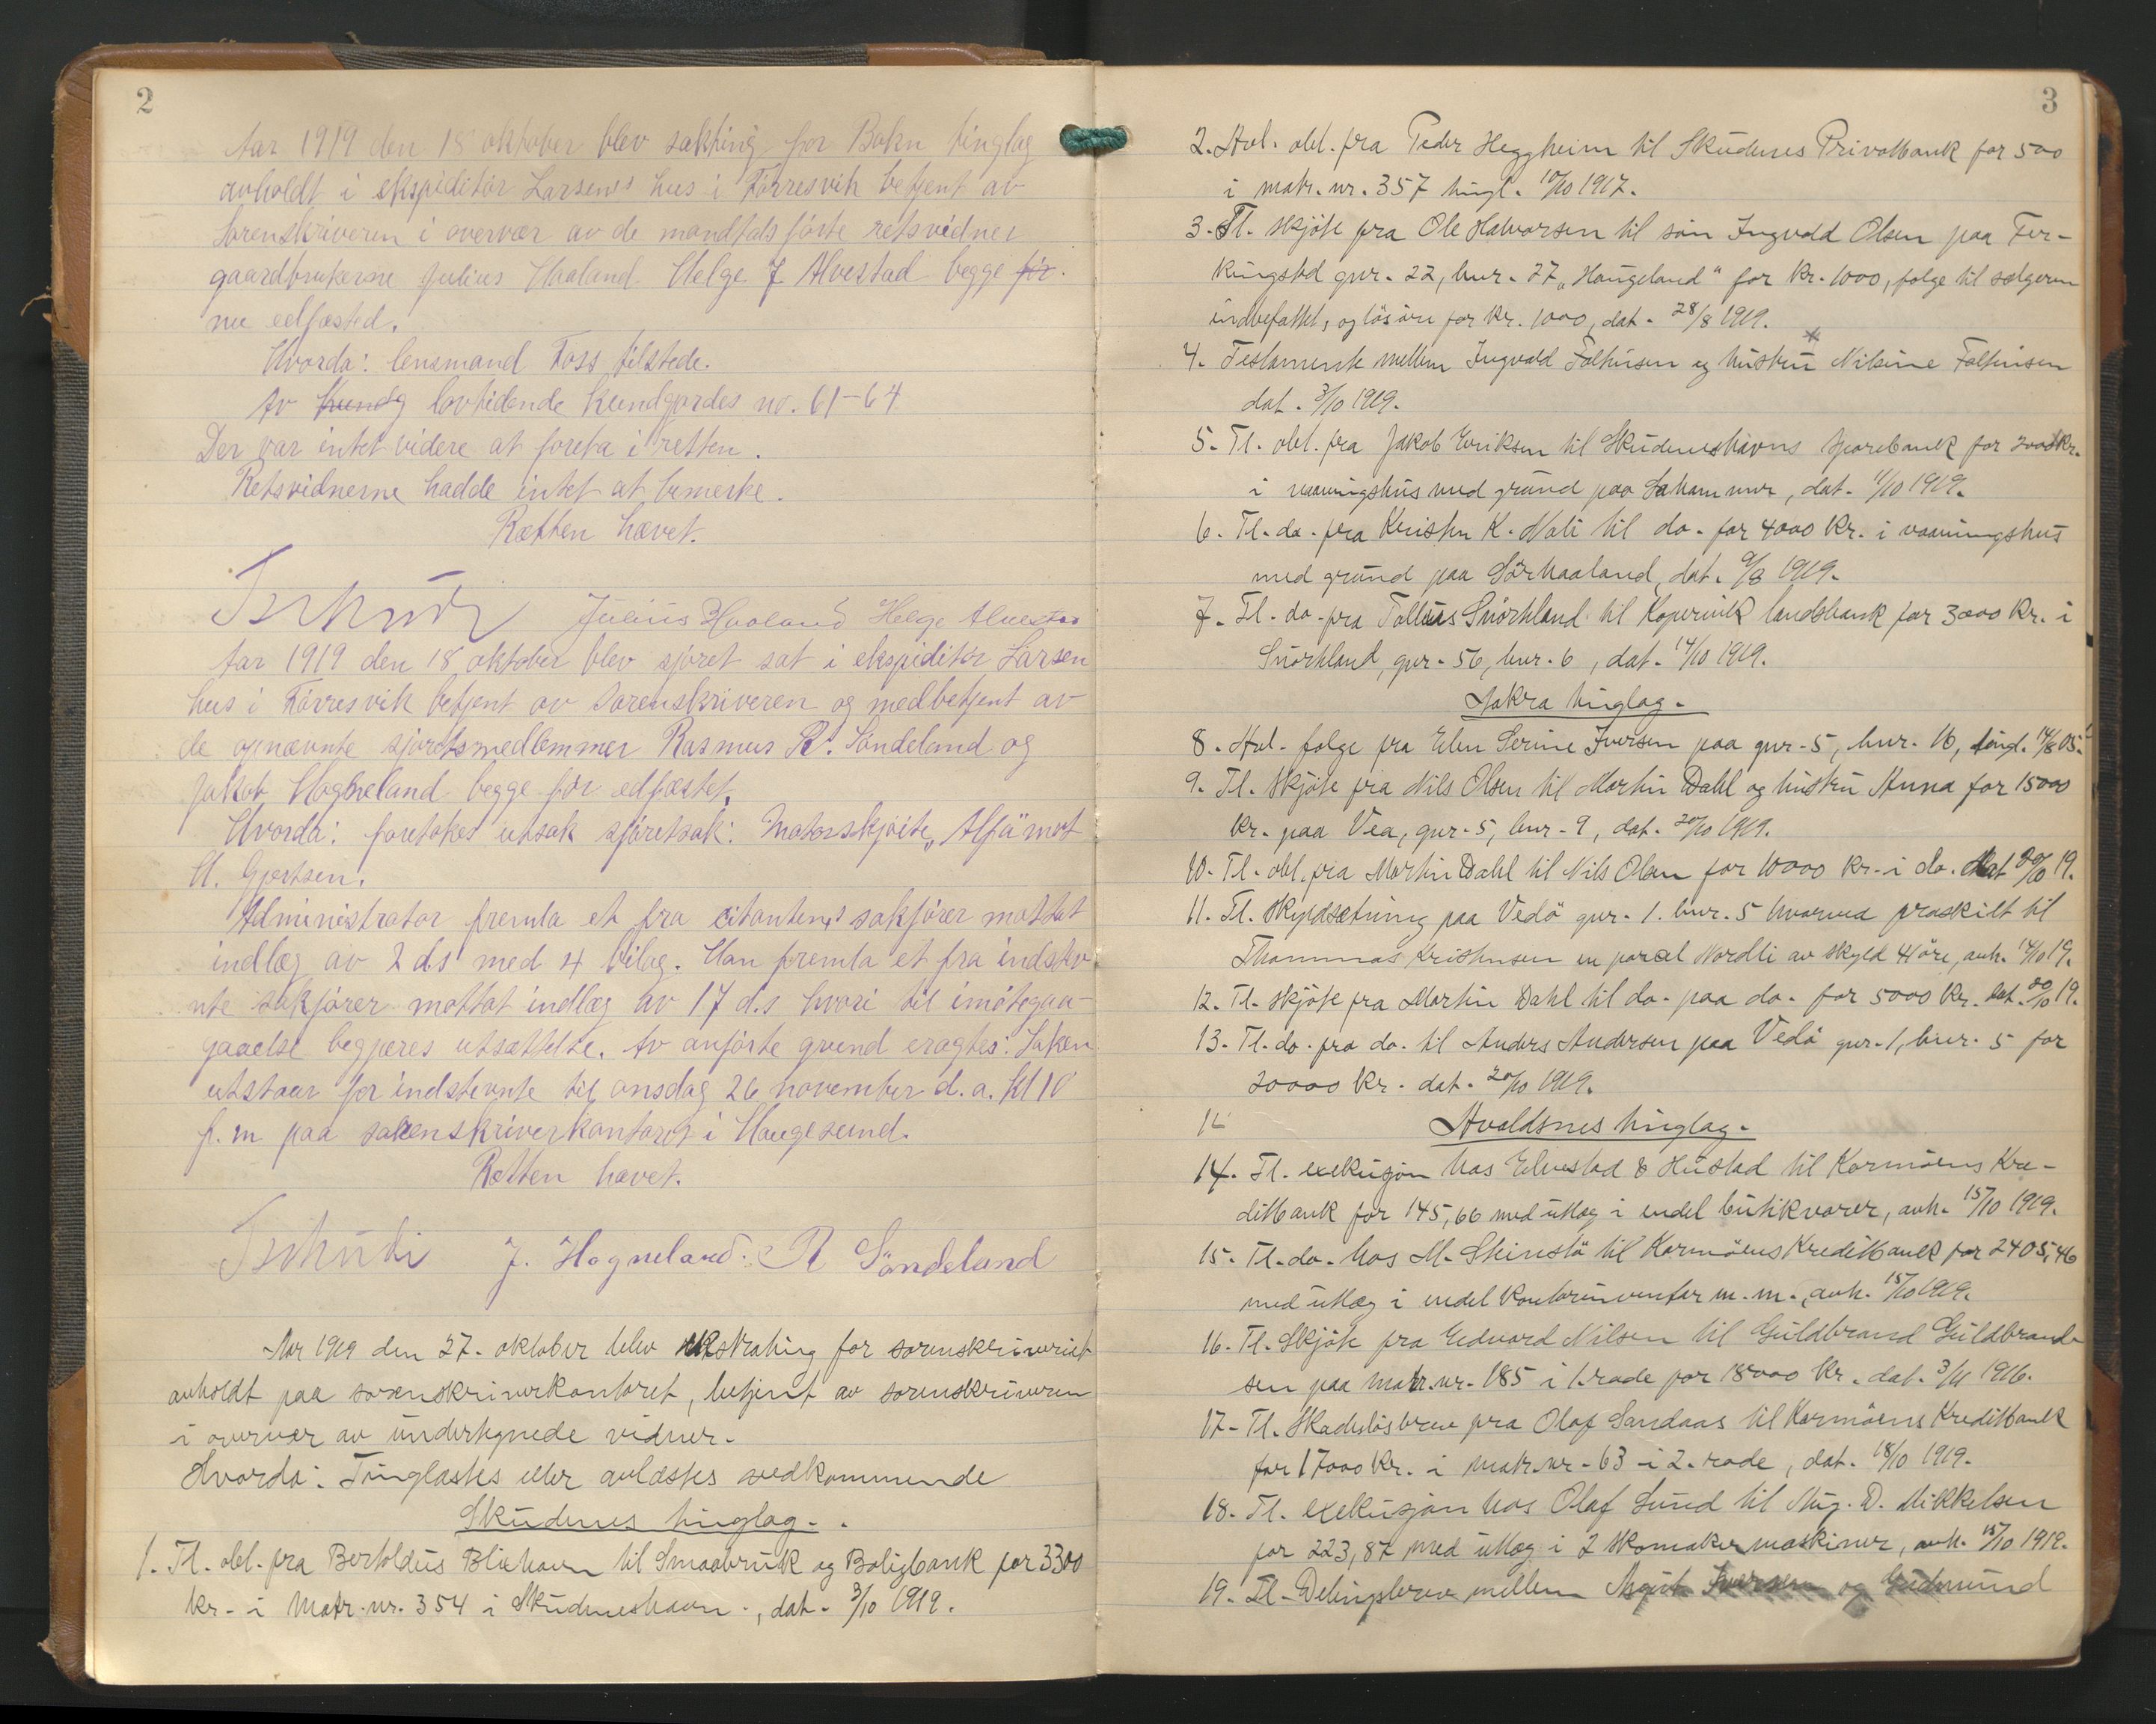 2
Aar 1919 den 18 oktober blev sakting for Bokn tinglag
avholdt i ekspeditör Larsens hus i Förresvik betjent av
Sorenskriveren i overvær av de mandtalsförte retsvidner
gaardbrukerne Julius Haaland Helge J Alvestad begge för
nu edfæsted.
Hvorda: lensmand Foss tilstede.
Av kundg lovtidende kundgjordes no. 61-64
Der var intet videre at foreta i retten.
Retsvidnerne hadde intet at bemerke.
Rætten hævet.
Tschudi Julius Haaland Helge Alvestad
Aar 1919 den 18 oktober blev sjöret sat i ekspeditör Larsen
hus i Förresvik betjent av Sorenskriveren og medbetjent av
de opnævnte sjöretsmedlemmer Rasmus R. Söndeland og
Jakob Hogneland begge för edfæstet.
Hvorda: foretokes utsak sjöretsak: Motorskjöite „Alfa" mot
H. Gjertsen.
Administrator fremla et fra citantens sakförer mottat
indlæg av 2 ds med 4 bilag. Han fremla et fra indstev
nte sakförer mottat indlæg av 17 d.s hvori til imötegaa-
gaaelse begjæres utsættelse. Av anförte grund eragtes: Saken
utstaar for indstevnte til onsdag 26 november d.a. kl 10
f.m paa sorenskriverkontoret i Haugesund.
Retten hævet.
Tschudi J. Hogneland. R Söndeland
Aar 1919 den 27. oktober blev ekstrating for sorenskriveriet
avholdt paa sorenskriverkontoret, betjent av sorenskriveren
i overvær av undertegnede vidner.
Hvorda: Tinglæstes eller avlæstes vedkommende
Skudenes tinglag.
1. Tl. obl. fra Bertoldus Blixhavn til Smaabruk og Boligbank for 3300
kr. i Matr. nr. 354 i Skudeneshavn., dat. 3/10 1919.
3
2. Avl. obl. fra Peder Heggheim til Skudenes Privatbank for 500
i matr. nr. 357 tingl. 10/10 1917.
3. Tl. skjöte fra Ole Halvorsen til sön Ingvald Olsen paa Fer-
kingstd gnr. 22, bnr. 27 „Haugeland" for kr. 1000, folge til sælgeren
indbefattet, og lösöre for kr. 1000, dat. 28/8 1919.
4. Testamente mellem Ingvald Falkeisen og hustru Nilsine Falkeisen
dat. 3/10 1919.
5. Tl. obl. fra Jakob Eriksen til Skudeneshavns Sparebank for 2000 kr.
i vaaningshus med grund paa Sahammer, dat. 11/10 1919.
6. Tl. do. fra Kristen K. Hali til do. for 4000 kr. i vaaningshus
med grund paa Sörhaaland, dat. 9/8 1919.
7. Tl. do. fra Tolleus Snörtland til Kopervik landsbank for 3000 kr. i
Snörtland, gnr. 56, bnr. 6, dat. 14/10 1919.
Aakra tinglag.
8. Avl. folge fra Elen Serine Iversen paa gnr. 5, bnr. 16, tingl. 14/8 05.
9. Tl. skjöte fra Nils Olsen til Martin Dahl og hustru Anna for 15000
kr. paa Vea, gnr. 5, bnr. 9, dat. 20/10 1919.
10. Tl. obl. fra Martin Dahl til Nils Olsen for 10000 kr. i do. dat 20/10 19.
11. Tl. skyldsetning paa Vedö gnr. 1. bnr. 5 hvorved fraskilt til
Thommas Kristensen en parcel Nordli av skyld 4 öre, avh. 14/10 19.
12. Tl. skjöte fra Martin Dahl til do. paa do. for 5000 kr. dat. 20/10 19.
13. Tl. do. fra do. til Anders Andersen paa Vedö gnr. 1, bnr. 5 for
20000 kr. dat. 20/10 1919.
Avaldsnes tinglag.
14. Tl. exekusjon hos Elvestad & Hustad til Karmöens Kre-
ditbank for 145,66 med utlæg i endel butikvarer, avh. 15/10 1919.
15. Tl. do. hos M. Skinstö til Karmöens Kreditbank for 2405,46
med utlæg i endel kontorinventar m.m., avh. 15/10 1919.
16. Tl. Skjöte fra Edvard Nilsen til Guldbrand Guldbrand-
sen paa Matr. nr. 185 i 1. rode for 18000 kr. dat. 3/11 1916.
17. Tl. Skadeslösbrev fra Olaf Sandaas til Karmöens Kreditbank
for 17000 kr. i Matr. nr. 63 i 2. rode, dat. 18/10 1919.
18. Tl. exekusjon hos Olaf Lund til Aug. D. Mikkelsen
for 223,87 med utlæg i 2 skomakermaskiner, avh. 15/10 1919.
19. Tl. Delingsbrev mellem Iversen og Gudmund